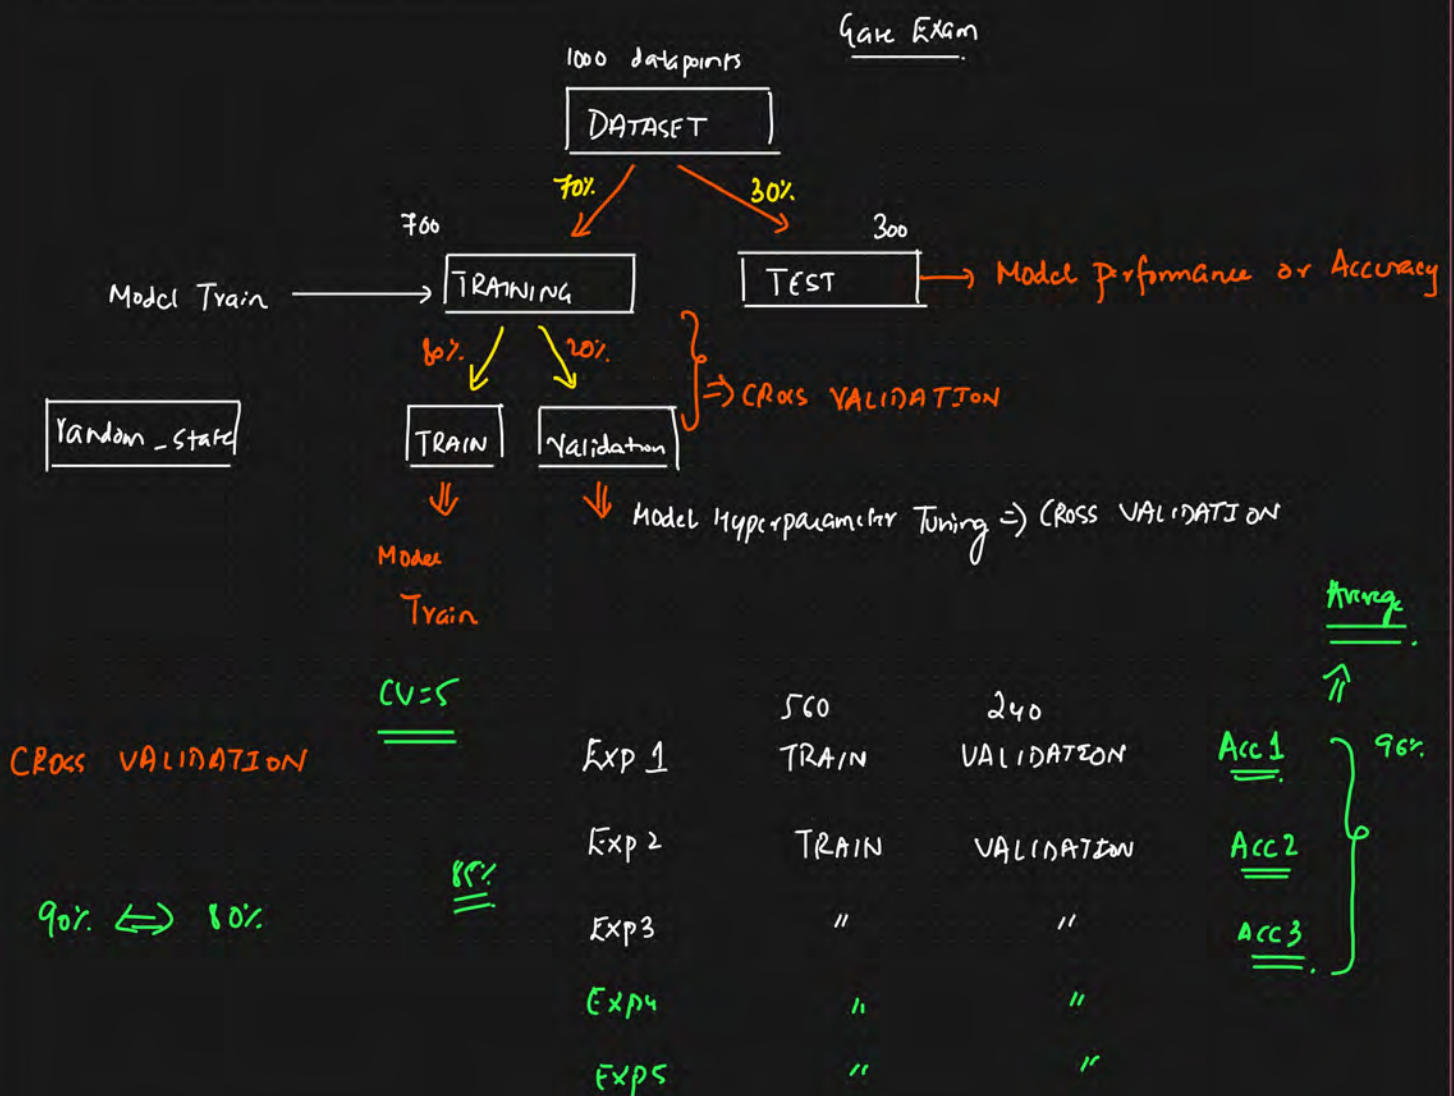 Gate Exam
1000 datapoints
DATASET
70%
30%
700
300
Model Train
TRAINING
TEST
Model performance or Accuracy
80%
20%
CROSS VALIDATION
random_state
TRAIN
Validation
Model Hyperparameter Tuning => CROSS VALIDATION
Model
Train
Average
CV=5
560
240
CROSS VALIDATION
Exp 1 TRAIN VALIDATION Acc 1 96%
Exp 2 TRAIN VALIDATION Acc 2
85%
90% <=> 80%
Exp3 " " Acc 3
Exp4 " "
Exp5 " "